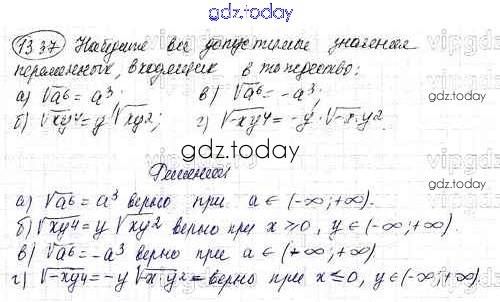 gdz.today
13.37 Найдите все допустимые значения
переменных, входящих в тождество:
а) √a⁶ = a³; в) √a⁶ = -a³;
gdz.today
б) √xy⁴ = y√xy²; г) √-xy⁴ = -y·√-x·y²
gdz.today
Решение
а) √a⁶ = a³ верно при a ∈ (-∞; +∞).
б) √xy⁴ = y√xy² верно при x ≥ 0, y ∈ (-∞; +∞).
в) √a⁶ = -a³ верно при a ∈ (+∞; +∞).
г) √-xy⁴ = -y√-x·y² - верно при x ≤ 0, y ∈ (-∞; +∞).
gdz.today